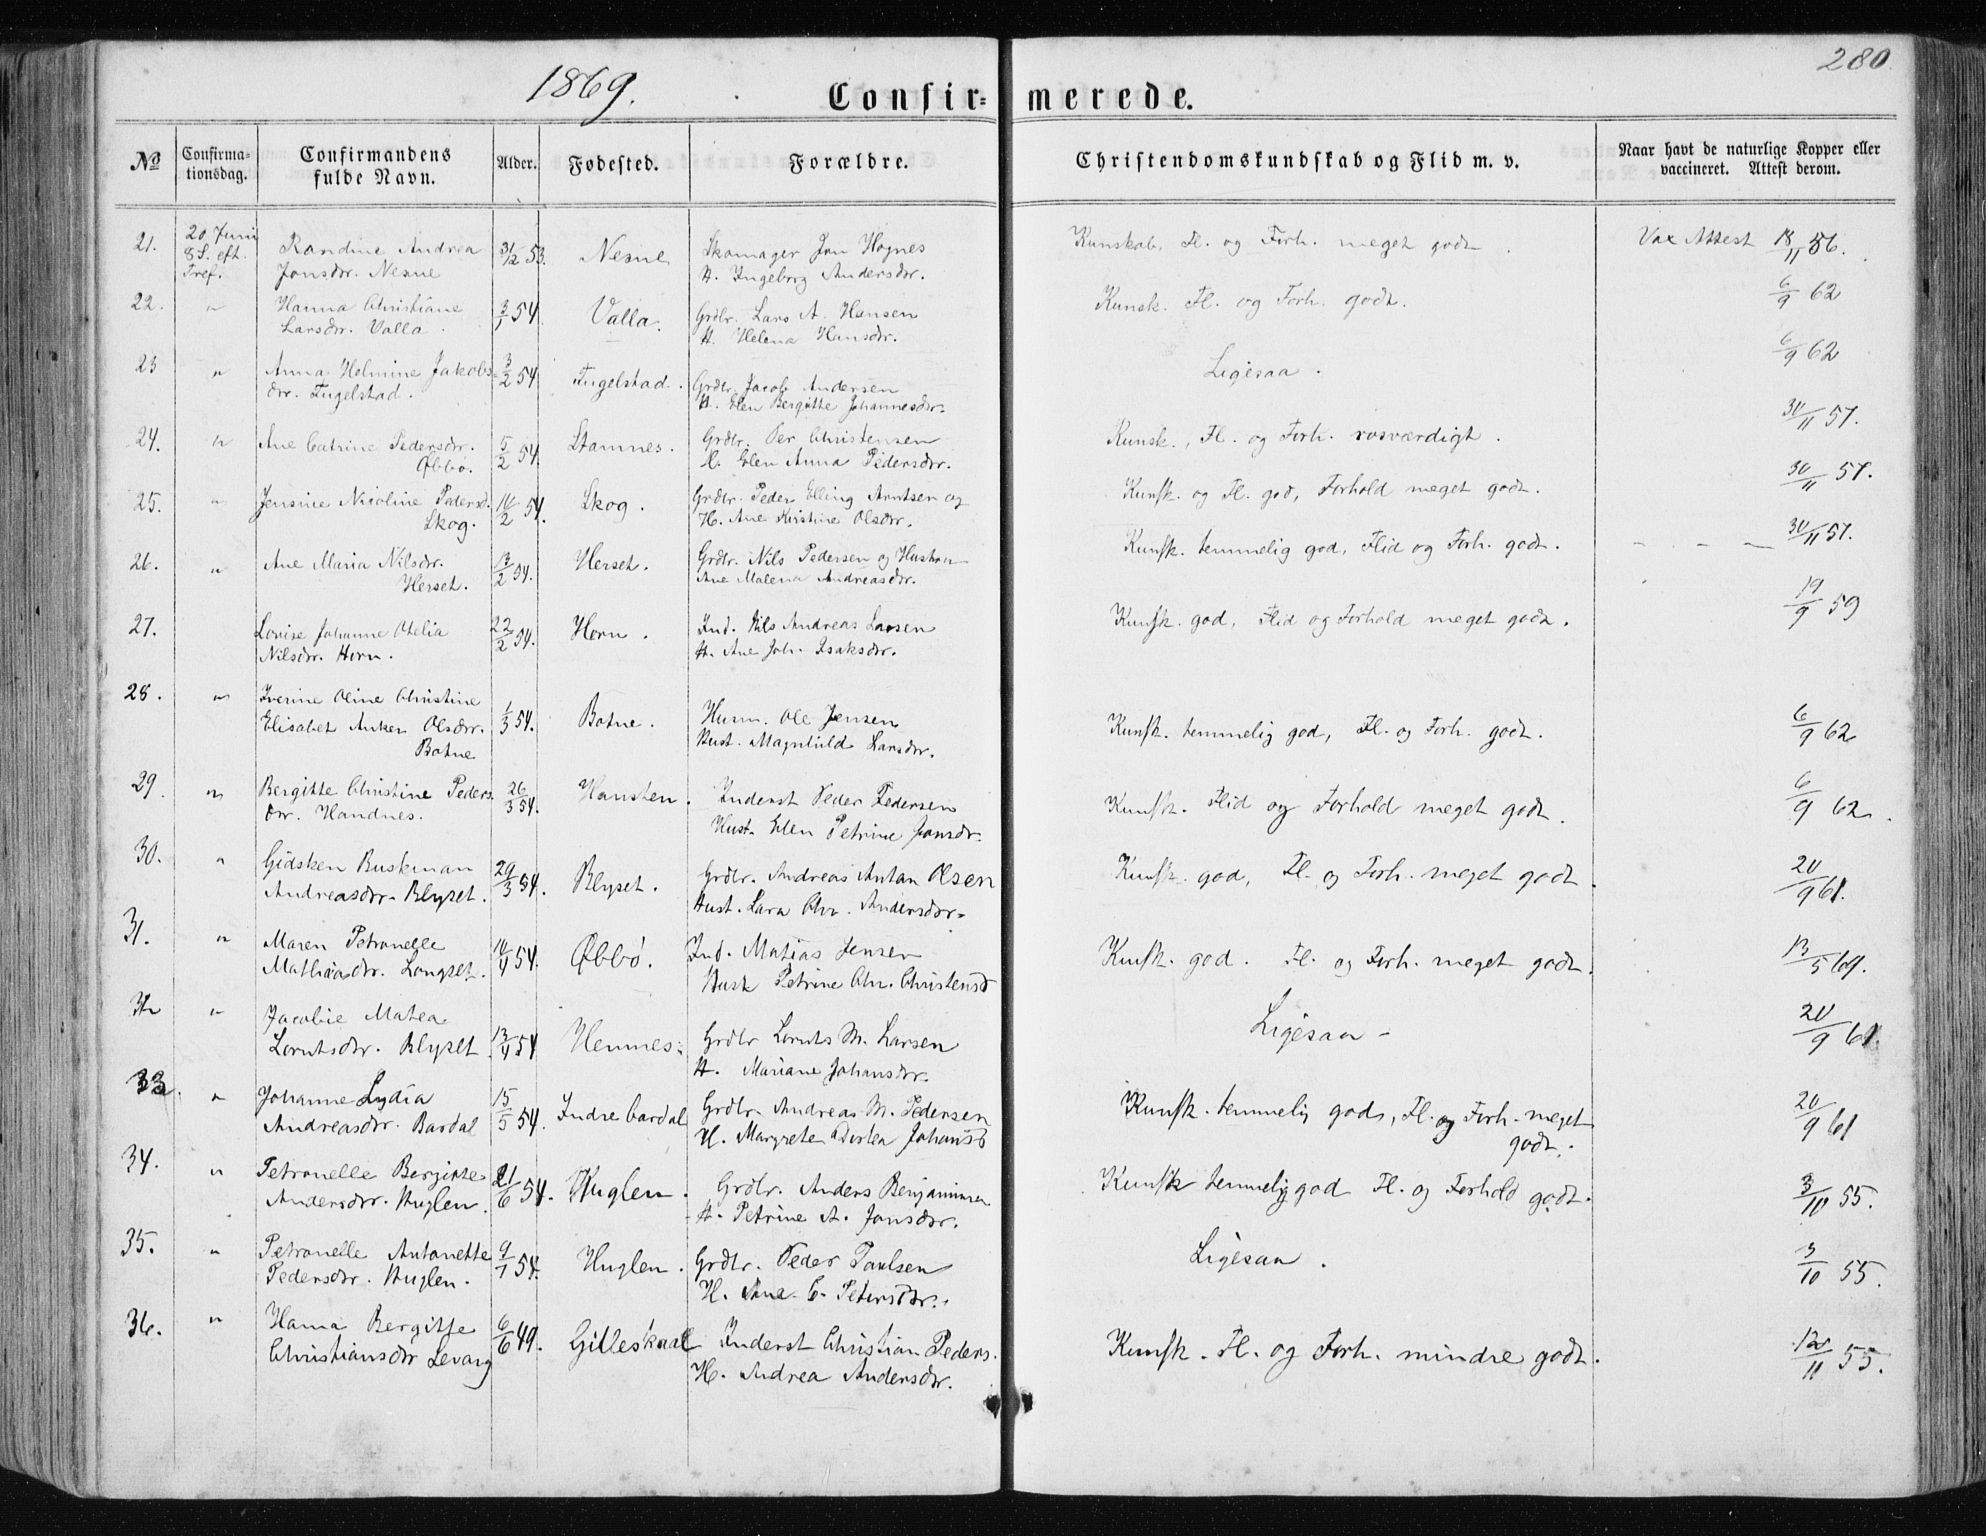 280
1869.
Confir- merede.
No Confirma-tionsdag. Confirmandens fulde Navn. Alder. Fødested. Forældre. Christendomskundskab og Flid m. v. Naar havt de naturlige Kopper eller vaccineret. Attest derom.
21. 20 Juni 31/12 53. Nesne Skomager Jon Hognes Kunskab, Fl. og Forh. meget godt. Vax Attest 18/11 56.
8 S. eft. Randine Andrea
Tref. Jonsdr. Nesne H. Ingeborg Andersdr.
22. " Hanna Christiane 3/1 54. Valla. Grdbr. Lars A. Hansen Kunsk. Fl. og Forh. godt. 6/9 62
Larsdr. Valla. H. Helena Hansdr.
23 " Anna Helmine Jakobs- 3/2 54. Fugelstad. Grdbr. Jacob Andersen Ligesaa. 6/9 62
dr. Fugelstad. H. Elen Bergitte Johannesdr.
24. " Ane Catrine Pedersdr. 5/2 54. Stamnes. Grdbr. Per Christensen Kunsk., Fl. og Forh. rosværdigt. 30/11 57.
Øbbø. H. Elen Anna Pedersdr.
25. " Jensine Nicoline Pedersd. 10/2 54. Skog. Grdbr. Peder Elling Arntsen og Kunsk. og Fl. god, Forhold meget godt. 30/11 57.
Skog. H. Ane Kirstine Olsdr.
26. " Ane Maria Nilsdr. 13/2 54. Herset. Grdbr. Nils Pedersen og Hustru Kunsk. temmelig god, Flid og Forh. godt. - - - 30/11 57.
Herset. Ane Malena Andreasdr.
27. Lovise Johanne Otelia 22/2 54. Horn. Ind. Nils Andreas Larsen Kunsk. god, Flid og Forhold meget godt. 19/9 59
Nilsdr. Horn. H. Ane Joh. Isaksdr.
28. " Iverine Oline Christine
Elisabet Anken Olsdr. 1/3 54. Botne. Husm. Ole Jensen Kunsk. temmelig god, Fl. og Forh. godt. 6/9 62
Botne Hust. Magnhild Larsdr.
29. " Bergitte Christine Peders- 26/3 54. Hansten. Inderst Peder Pedersen Kunsk. Flid og Forhold meget godt. 6/9 62.
dr. Handnes. Hust. Elen Petrine Jonsdr.
30. " Gidsken Buskman 29/3 54. Blyset. Grdbr. Andreas Antan Olsen Kunsk. god, Fl. og Forh. meget godt. 20/9 61.
Andreasdr. Blyset. Hust. Lara Chr. Andersdr.
31. " Maren Petronelle 10/4 54. Øbbø. Ind. Matias Jensen Kunsk. god. Fl. og Forh. meget godt. 13/5 69.
Mathiasdr. Langset. Hust Petrine Chr. Christensd
32 " Jacobie Matea Ligesaa -
Lorntsdr. Blyset. 13/4 54 Hemnes. Grdbr Lornts M. Larsen 20/9 61.
H. Mariane Johansdr.
33. " Johanne Lydia 15/5 54. Indre Bardal Grdbr. Andreas M. Pedersen Kunsk. temmelig god, Fl. og Forh. meget 20/9 61
Andreasdr. Bardal H. Margrete Dortea Johansd godt.
34. " Petronelle Bergitte 21/6 54. Huglen. Grdbr. Anders Benjaminsen Kunsk temmelig god Fl. og Forhold godt. 3/10 55.
Andersdr. Huglen. H. Petrine A. Jonsdr.
35. " Petronelle Antonette 9/7 54. Huglen. Grdbr. Peder Paulsen Ligesaa. 3/10 55.
Pedersdr. Huglen. H. Ane C. Petersdr.
36. " Hanna Bergitte 6/6 49. Gilleskaal Inderst Christian Peders. Kunsk. Fl. og Forh. mindre godt. 55.
Christiansdr Levang H. Andrea Andersdr.